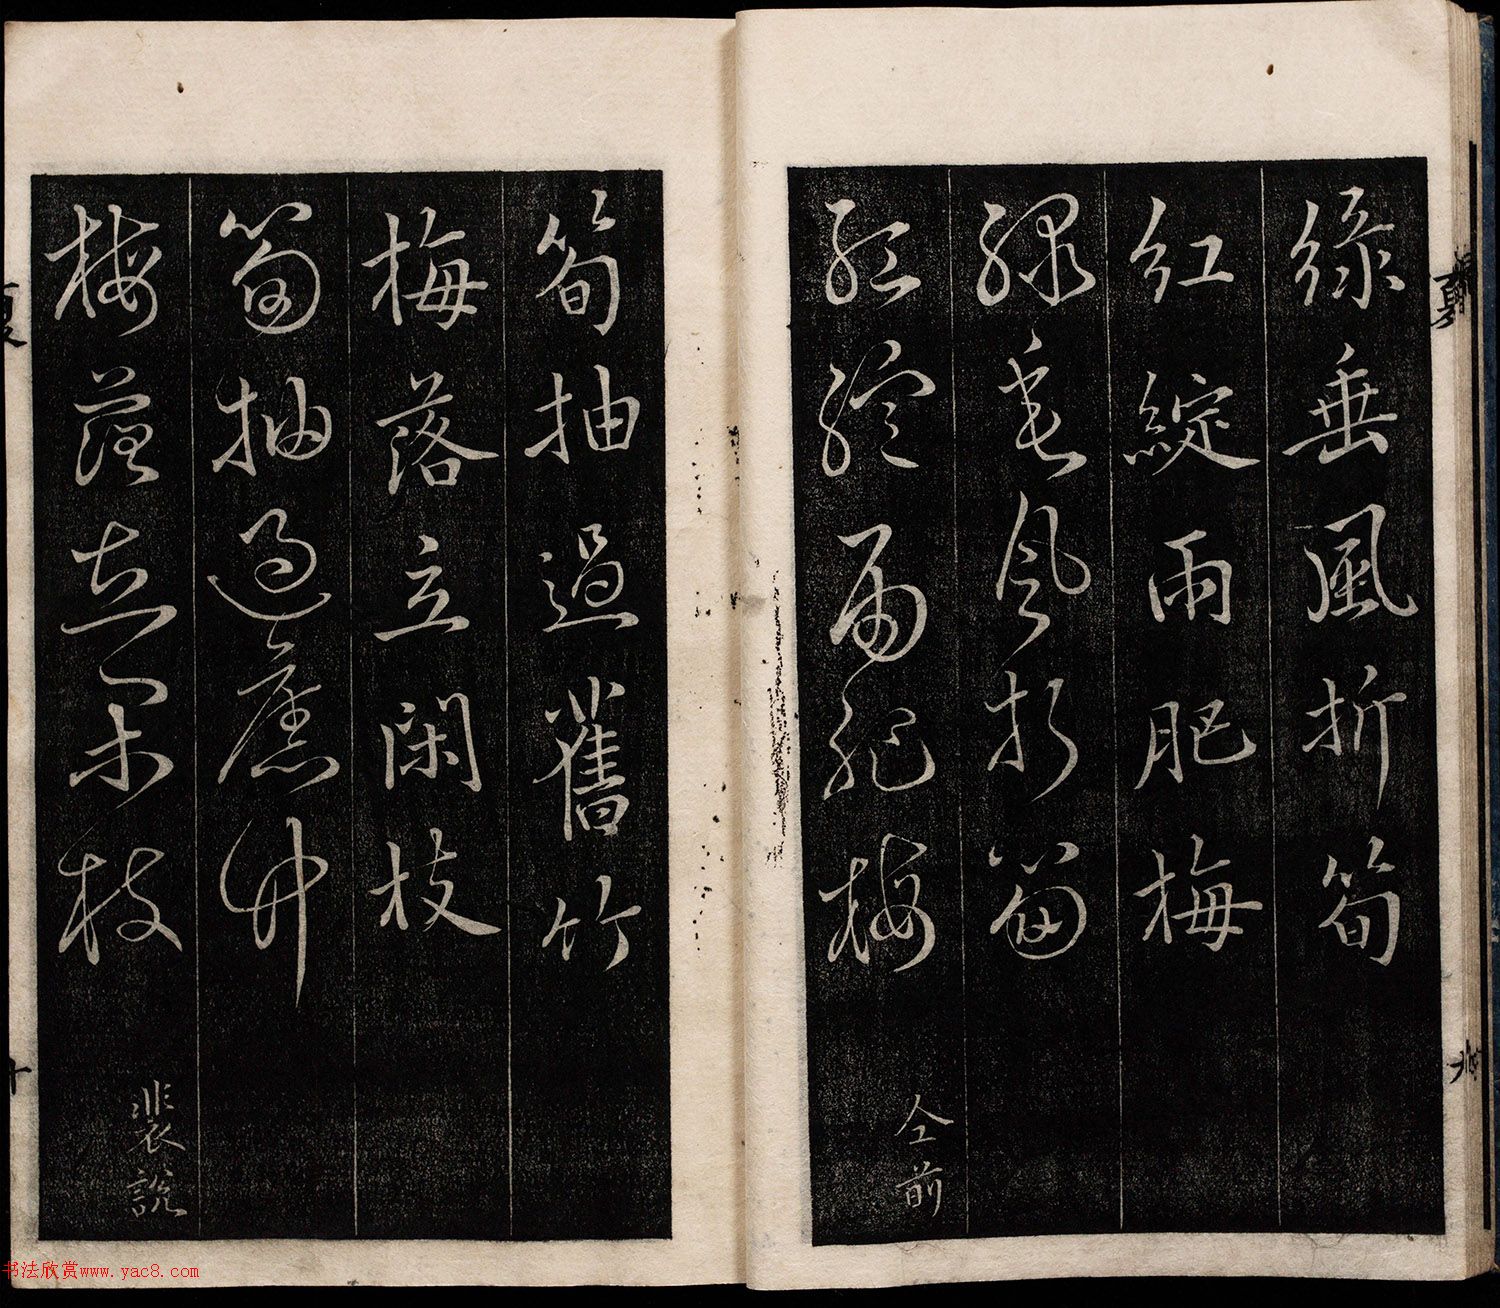 綠垂風折筍
紅綻雨肥梅
綠垂風折筍
紅綻雨肥梅
仝前
筍抽過舊竹
梅落立閑枝
筍抽過舊竹
梅落立閑枝
裴說
夏
九
夏
十
书法欣赏www.yac8.com